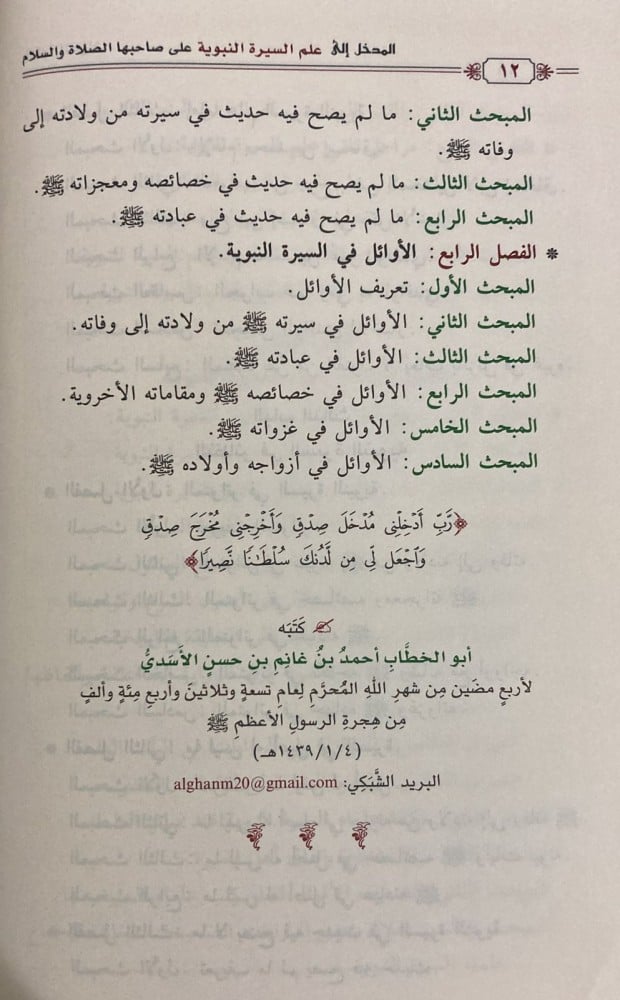 المدخل إلى علم السيرة النبوية على صاحبها الصلاة والسلام
١٢
المبحث الثاني: ما لم يصح فيه حديث في سيرته من ولادته إلى
وفاته ﷺ.
المبحث الثالث: ما لم يصح فيه حديث في خصائصه ومعجزاته ﷺ.
المبحث الرابع: ما لم يصح فيه حديث في عبادته ﷺ.
* الفصل الرابع: الأوائل في السيرة النبوية.
المبحث الأول: تعريف الأوائل.
المبحث الثاني: الأوائل في سيرته ﷺ من ولادته إلى وفاته.
المبحث الثالث: الأوائل في عبادته ﷺ.
المبحث الرابع: الأوائل في خصائصه ﷺ ومقاماته الأخروية.
المبحث الخامس: الأوائل في غزواته ﷺ.
المبحث السادس: الأوائل في أزواجه وأولاده ﷺ.
﴿رَّبِّ أَدۡخِلۡنِي مُدۡخَلَ صِدۡقٖ وَأَخۡرِجۡنِي مُخۡرَجَ صِدۡقٖ
وَٱجۡعَل لِّي مِن لَّدُنكَ سُلۡطَٰنٗا نَّصِيرٗا﴾
كَتَبَه
أبو الخطَّابِ أحمدُ بنُ غانِمِ بنِ حسنٍ الأَسَديُّ
لأربعٍ مضَين مِن شهرِ اللهِ المُحرَّمِ لِعامِ تسعةٍ وثلاثينَ وأربعِ مِئةٍ وألفٍ
مِن هِجرةِ الرسولِ الأعظمِ ﷺ
(١٤٣٩/١/٤هـ)
البريد الشَّبَكِي: alghanm20@gmail.com